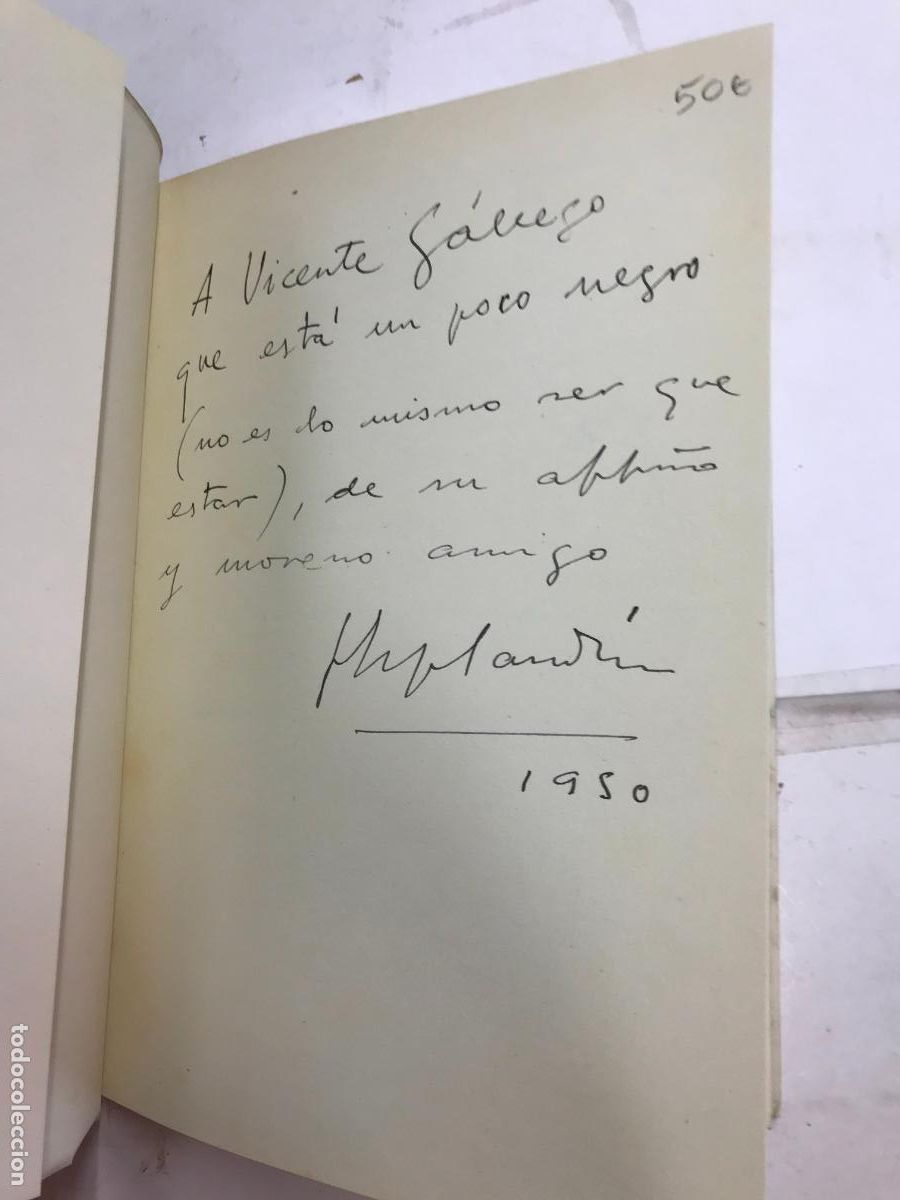 50€
A Vicente Gállego
que está un poco negro
(no es lo mismo ser que
estar), de su affmo
y moreno amigo
1950
todocoleccion